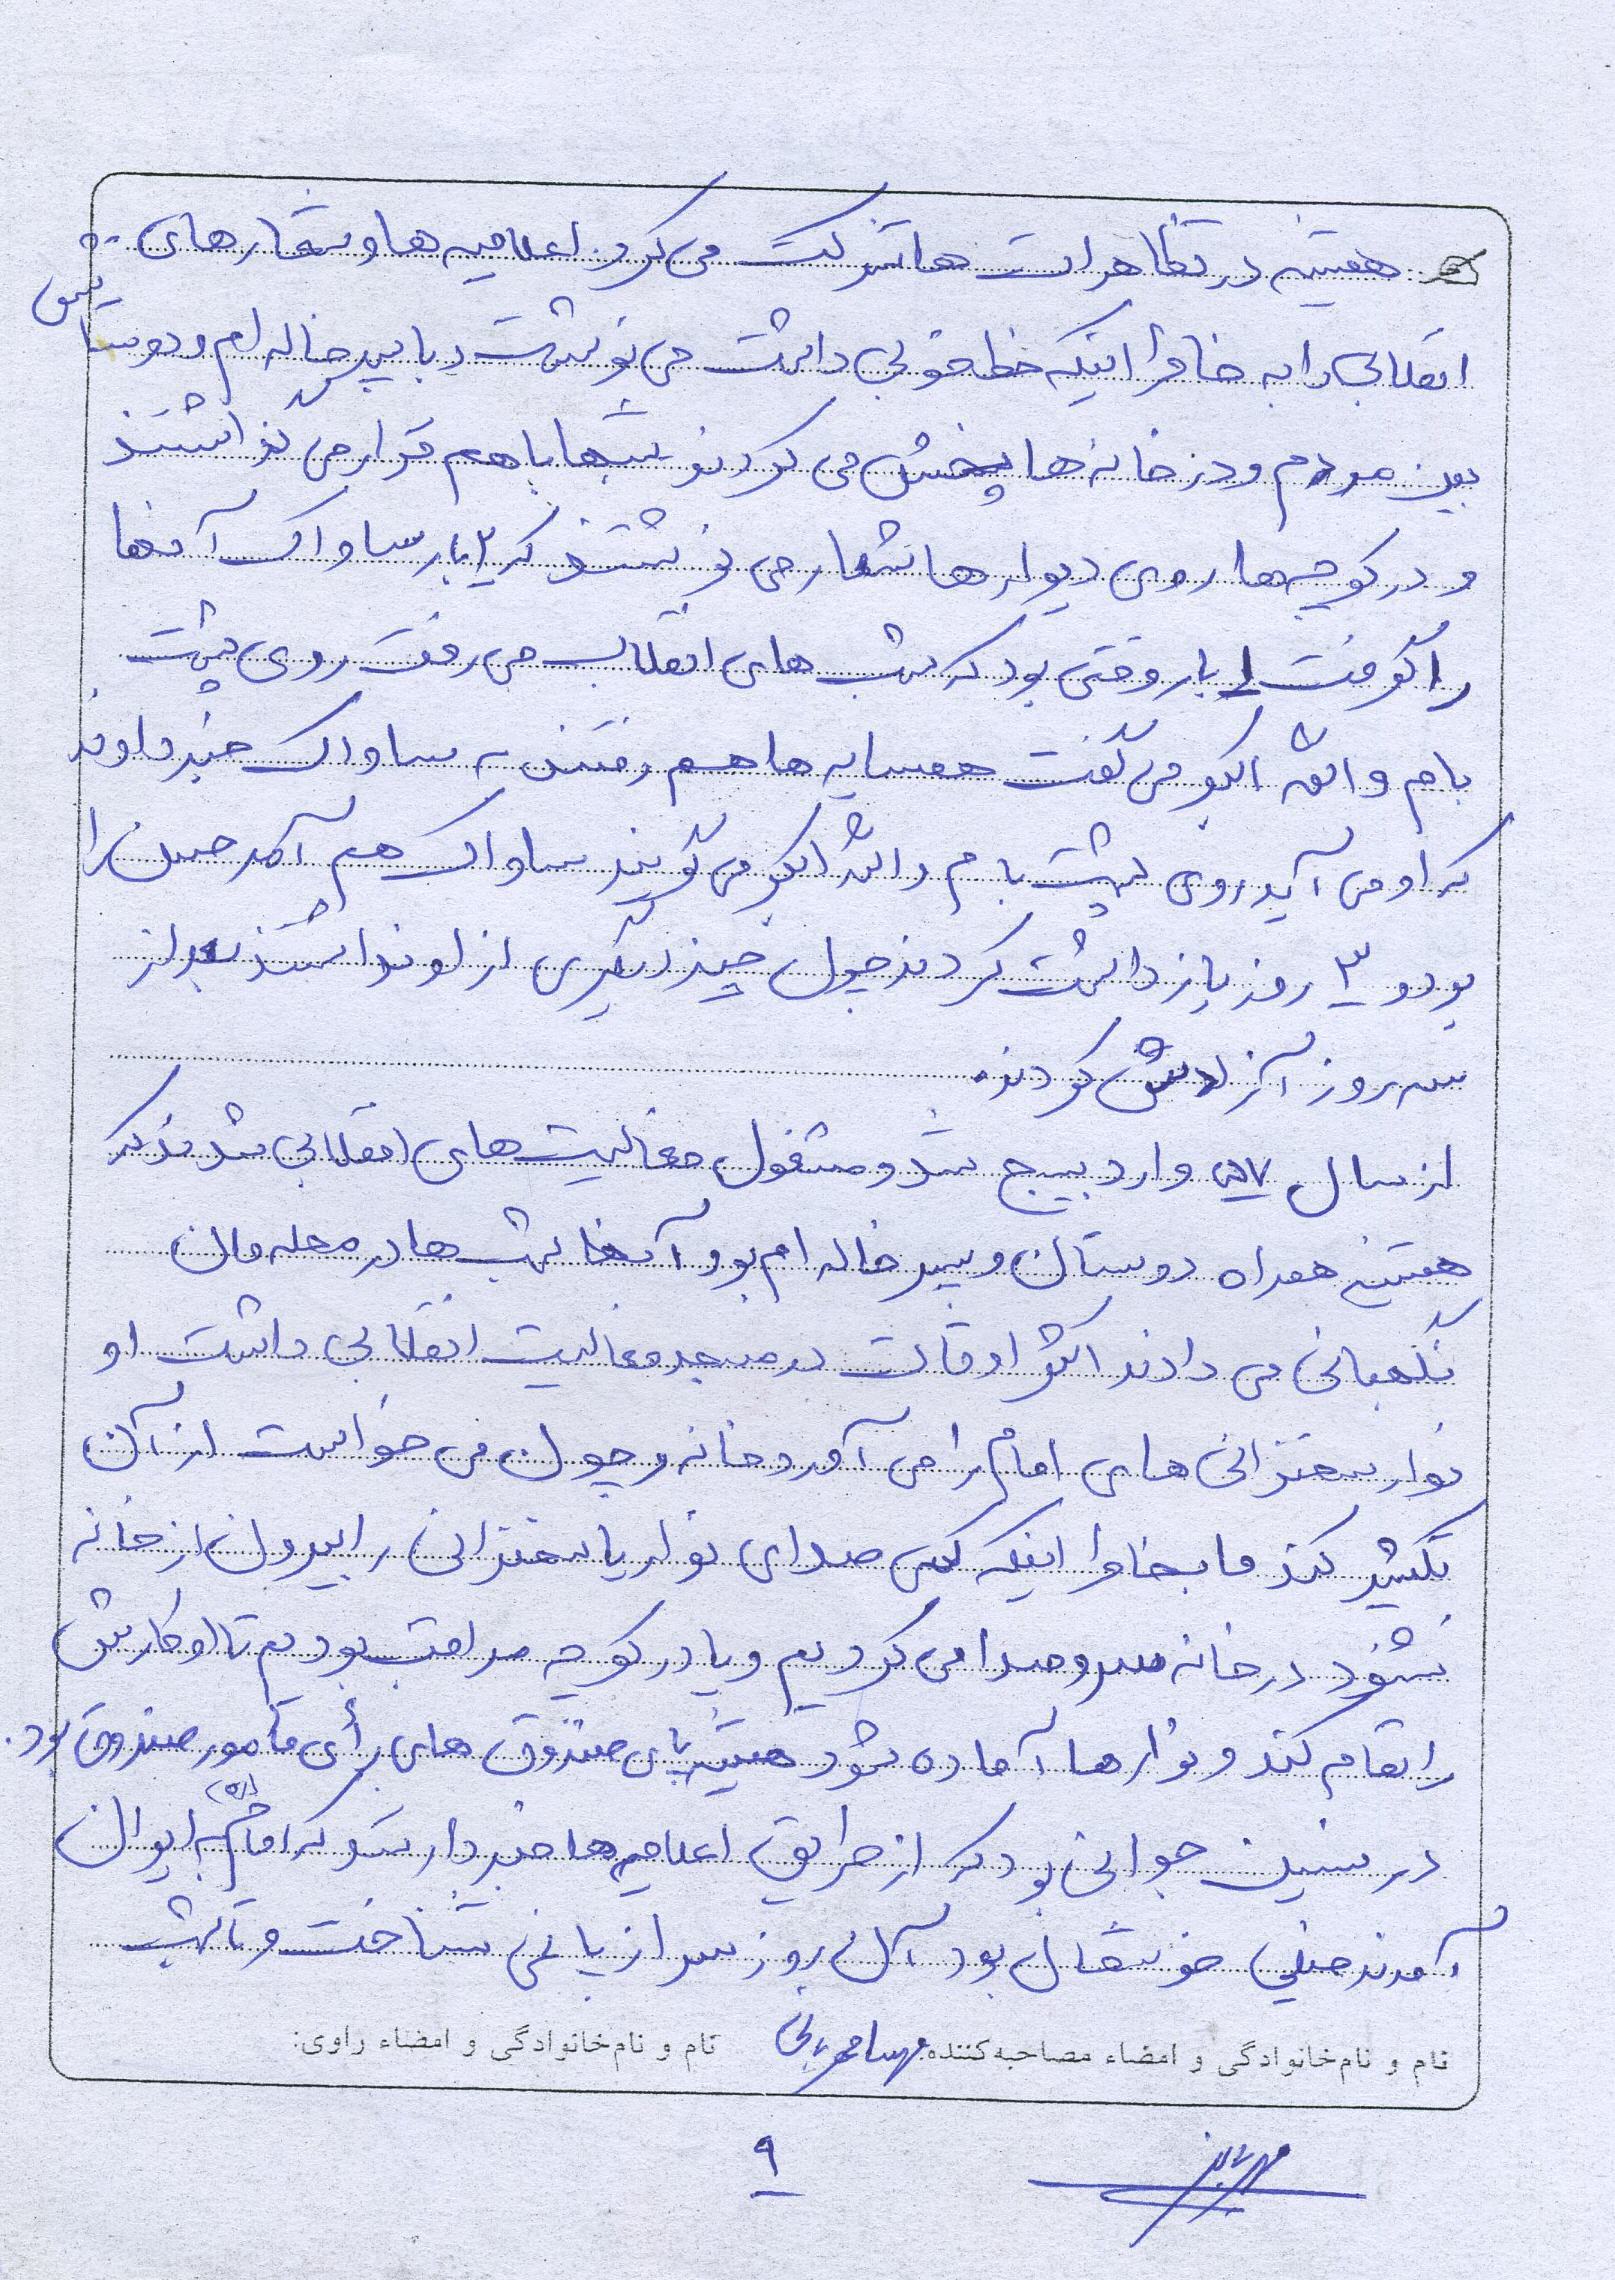 همیشه در تظاهرات ها شرکت می کرد. اعلامیه ها و شعارهای
انقلابی را به خاطر اینکه خط خوبی داشت می نوشت و با پسرخاله ام و دوستانش
بین مردم و در خانه ها پخش می کردند شبها با هم قرار می گذاشتند
و در کوچه ها روی دیوارها شعار می نوشتند که ۲ بار ساواک آنها
را گرفت ۱ بار وقتی بود که شب های انقلاب می رفت روی پشت
بام و الله اکبر می گفت همسایه ها هم رفتند به ساواک خبر دادند
که او می آید روی پشت بام و الله اکبر می گویند ساواک هم آمد حسن را
برد و ۳ روز بازداشت کردند چون چیز دیگری از او نداشتند بعد از
سه روز آزادش کردند.
از سال ۵۷ وارد بسیج شد و مشغول فعالیت های انقلابی شدند که
همیشه همراه دوستان و پسرخاله ام بود آنها شب ها در محله مان
نگهبانی می دادند اکثر اوقات در مسجد فعالیت انقلابی داشت او
نوار سخنرانی های امام را می آورد خانه و چون می خواست از آن
تکثیر کند ما بخاطر اینکه کسی صدای نوار یا سخنرانی را بیرون از خانه
نشنود در خانه سر و صدا می کردیم و یا در کوچه مراقب بودیم تا او کارش
را تمام کند و نوارها آماده شود همیشه پای صندوق های رأی مأمور صندوق بود.
در سنین جوانی بود که از طریق اعلامیه ها خبردار شد که امام (ره) به ایران
آمدند خیلی خوشحال بود آن روز سر از پا نمی شناخت و تا شب
نام و نام‌خانوادگی و امضاء مصاحبه‌کننده: نام و نام‌خانوادگی و امضاء راوی:
۹